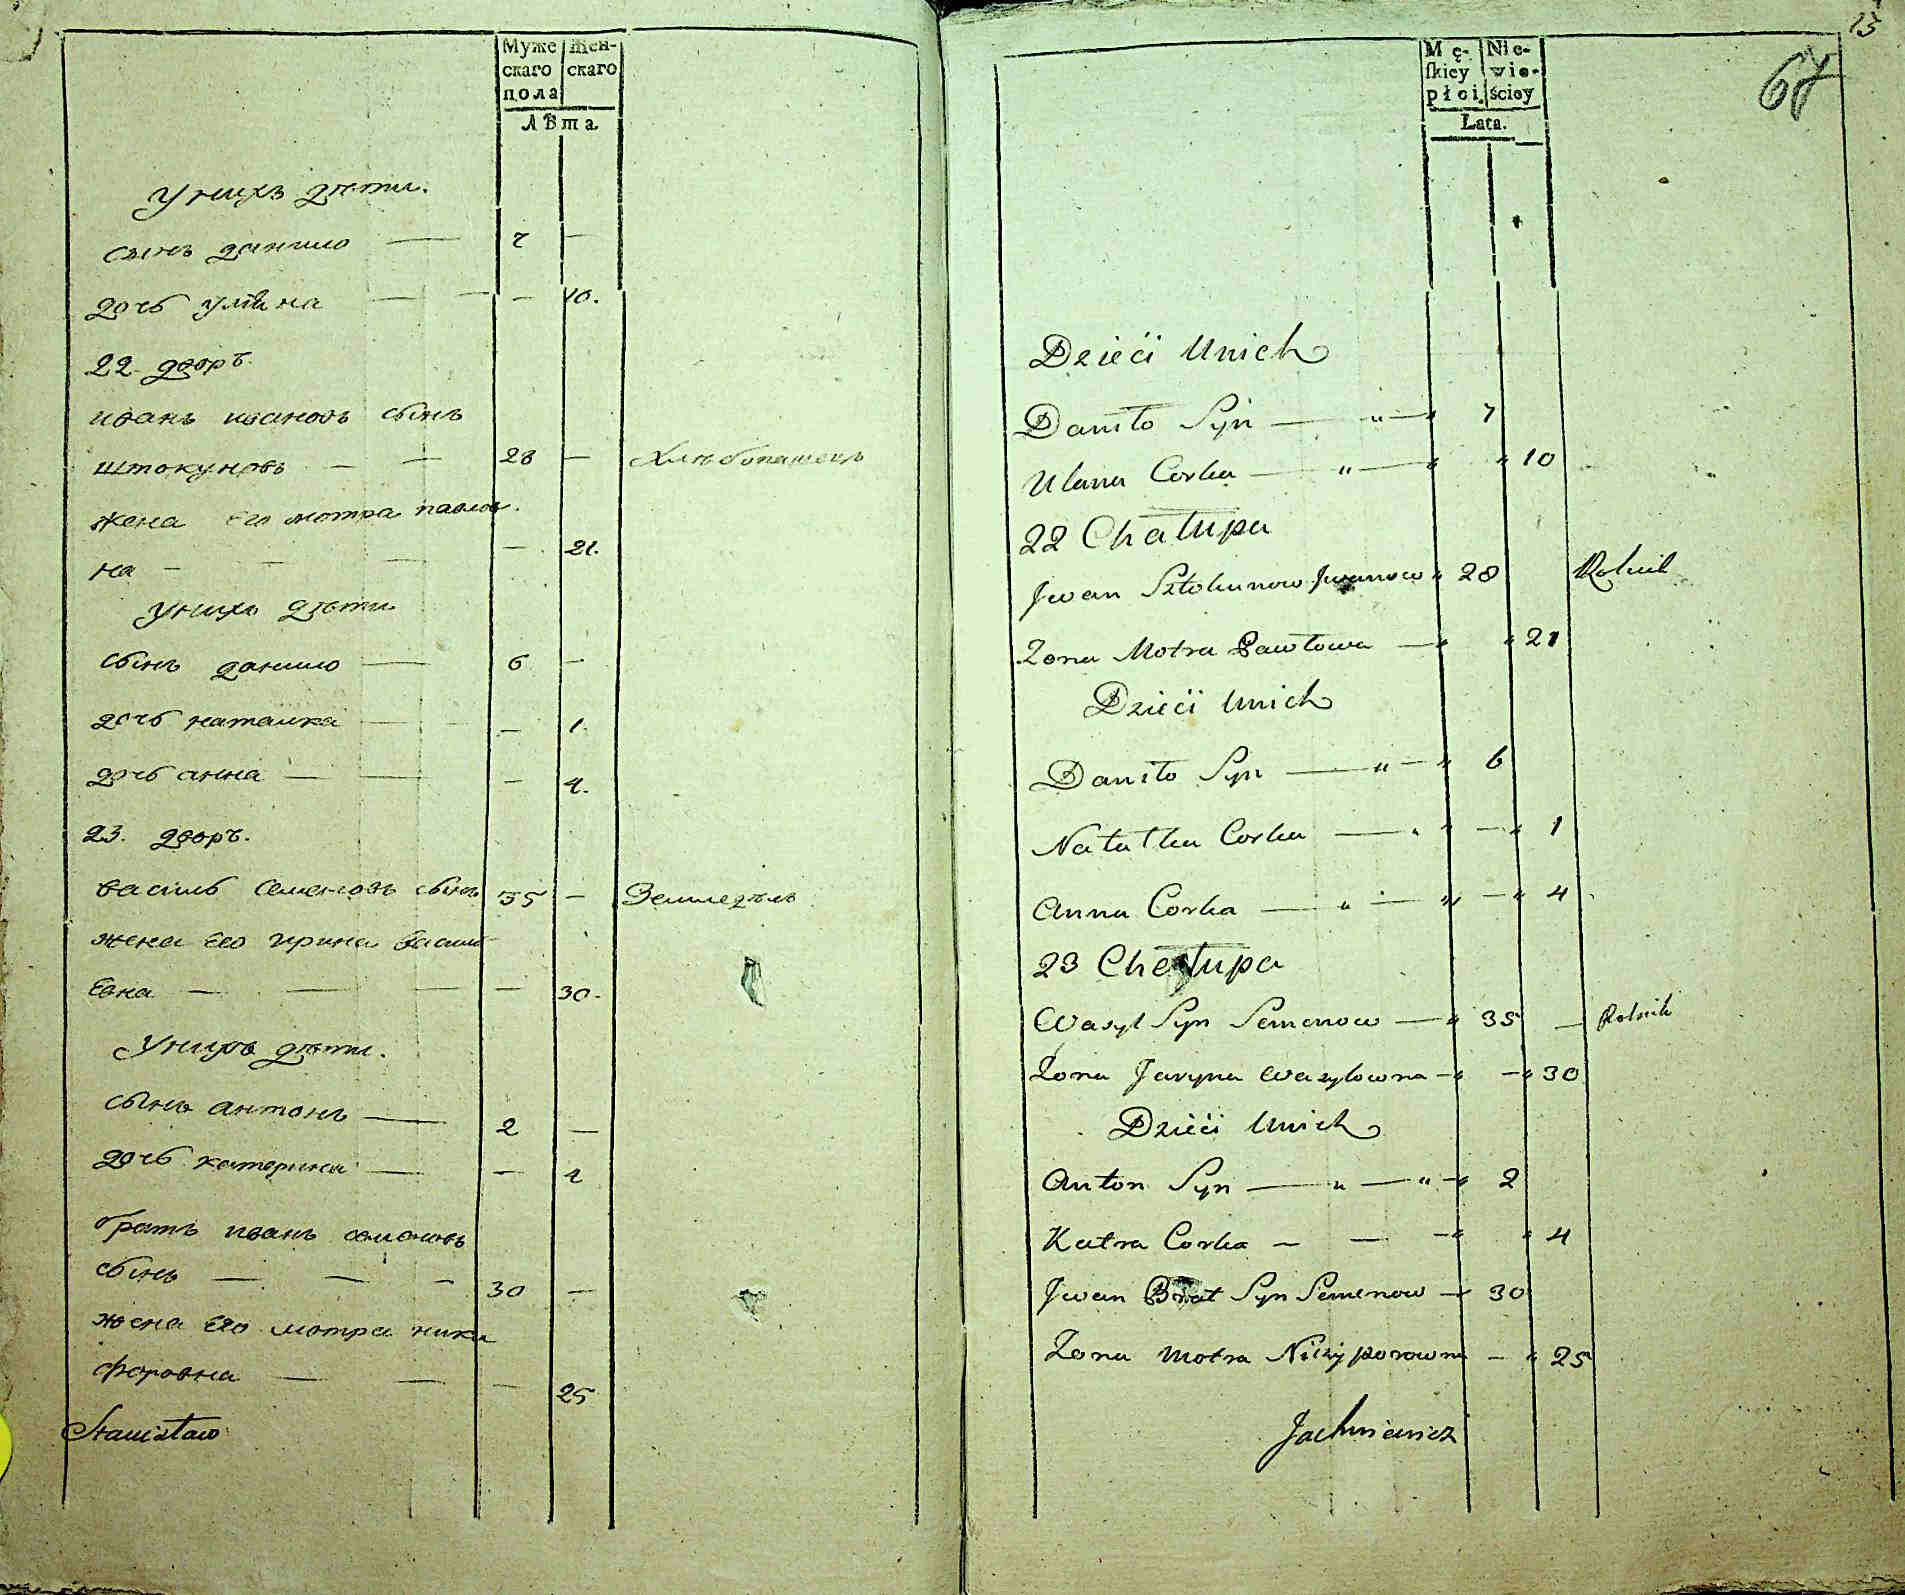 Муже Жен-
скаго скаго
пола
Лѣта
У нихъ дѣти.
сынъ данило — 7 —
дочь уляна — — — 10.
22 дворъ.
иванъ ивановъ сынъ
штокуновъ — — 28 — Хлѣбопашецъ
жена его мотра павлов
на — — — — 21.
У нихъ дѣти
сынъ данило — 6 —
дочь наталка — — — 1.
дочь анна — — — 4.
23. дворъ.
василь семеновъ сынъ 35 — Земледѣль
жена его ирина васил
евна — — — — 30.
У нихъ дѣти.
сынъ антонъ — 2 —
дочь катерина — — 4
братъ иванъ семеновъ
сынъ — — — 30 —
жена его мотра ники
форовна — — — 25
Stanisław
13
67
Mę- Nie-
skiey wie-
płci. ściey
Lata.
Dzieći Unich
Daniło Syn — " — " 7
Ulana Corka — " — " " 10
22 Chałupa
Jwan Sztokunow Jwanow " 28 Rolnik
Zona Motra Pawłowa — " " 21
Dzieći Unich
Daniło Syn — " — " 6
Natałka Corka — " " — " 1
Anna Corka — " — " — " 4
23 Chałupa
Wasyl Syn Semenow — " 35 — Rolnik
Zona Jaryna Wasylowna — " — " 30
Dzieći Unich
Anton Syn — " — " — " 2
Katra Corka — — — " " 4
Jwan Brat Syn Semenow — 30
Zona Motra Niczyporowna — " 25
Jachniewicz